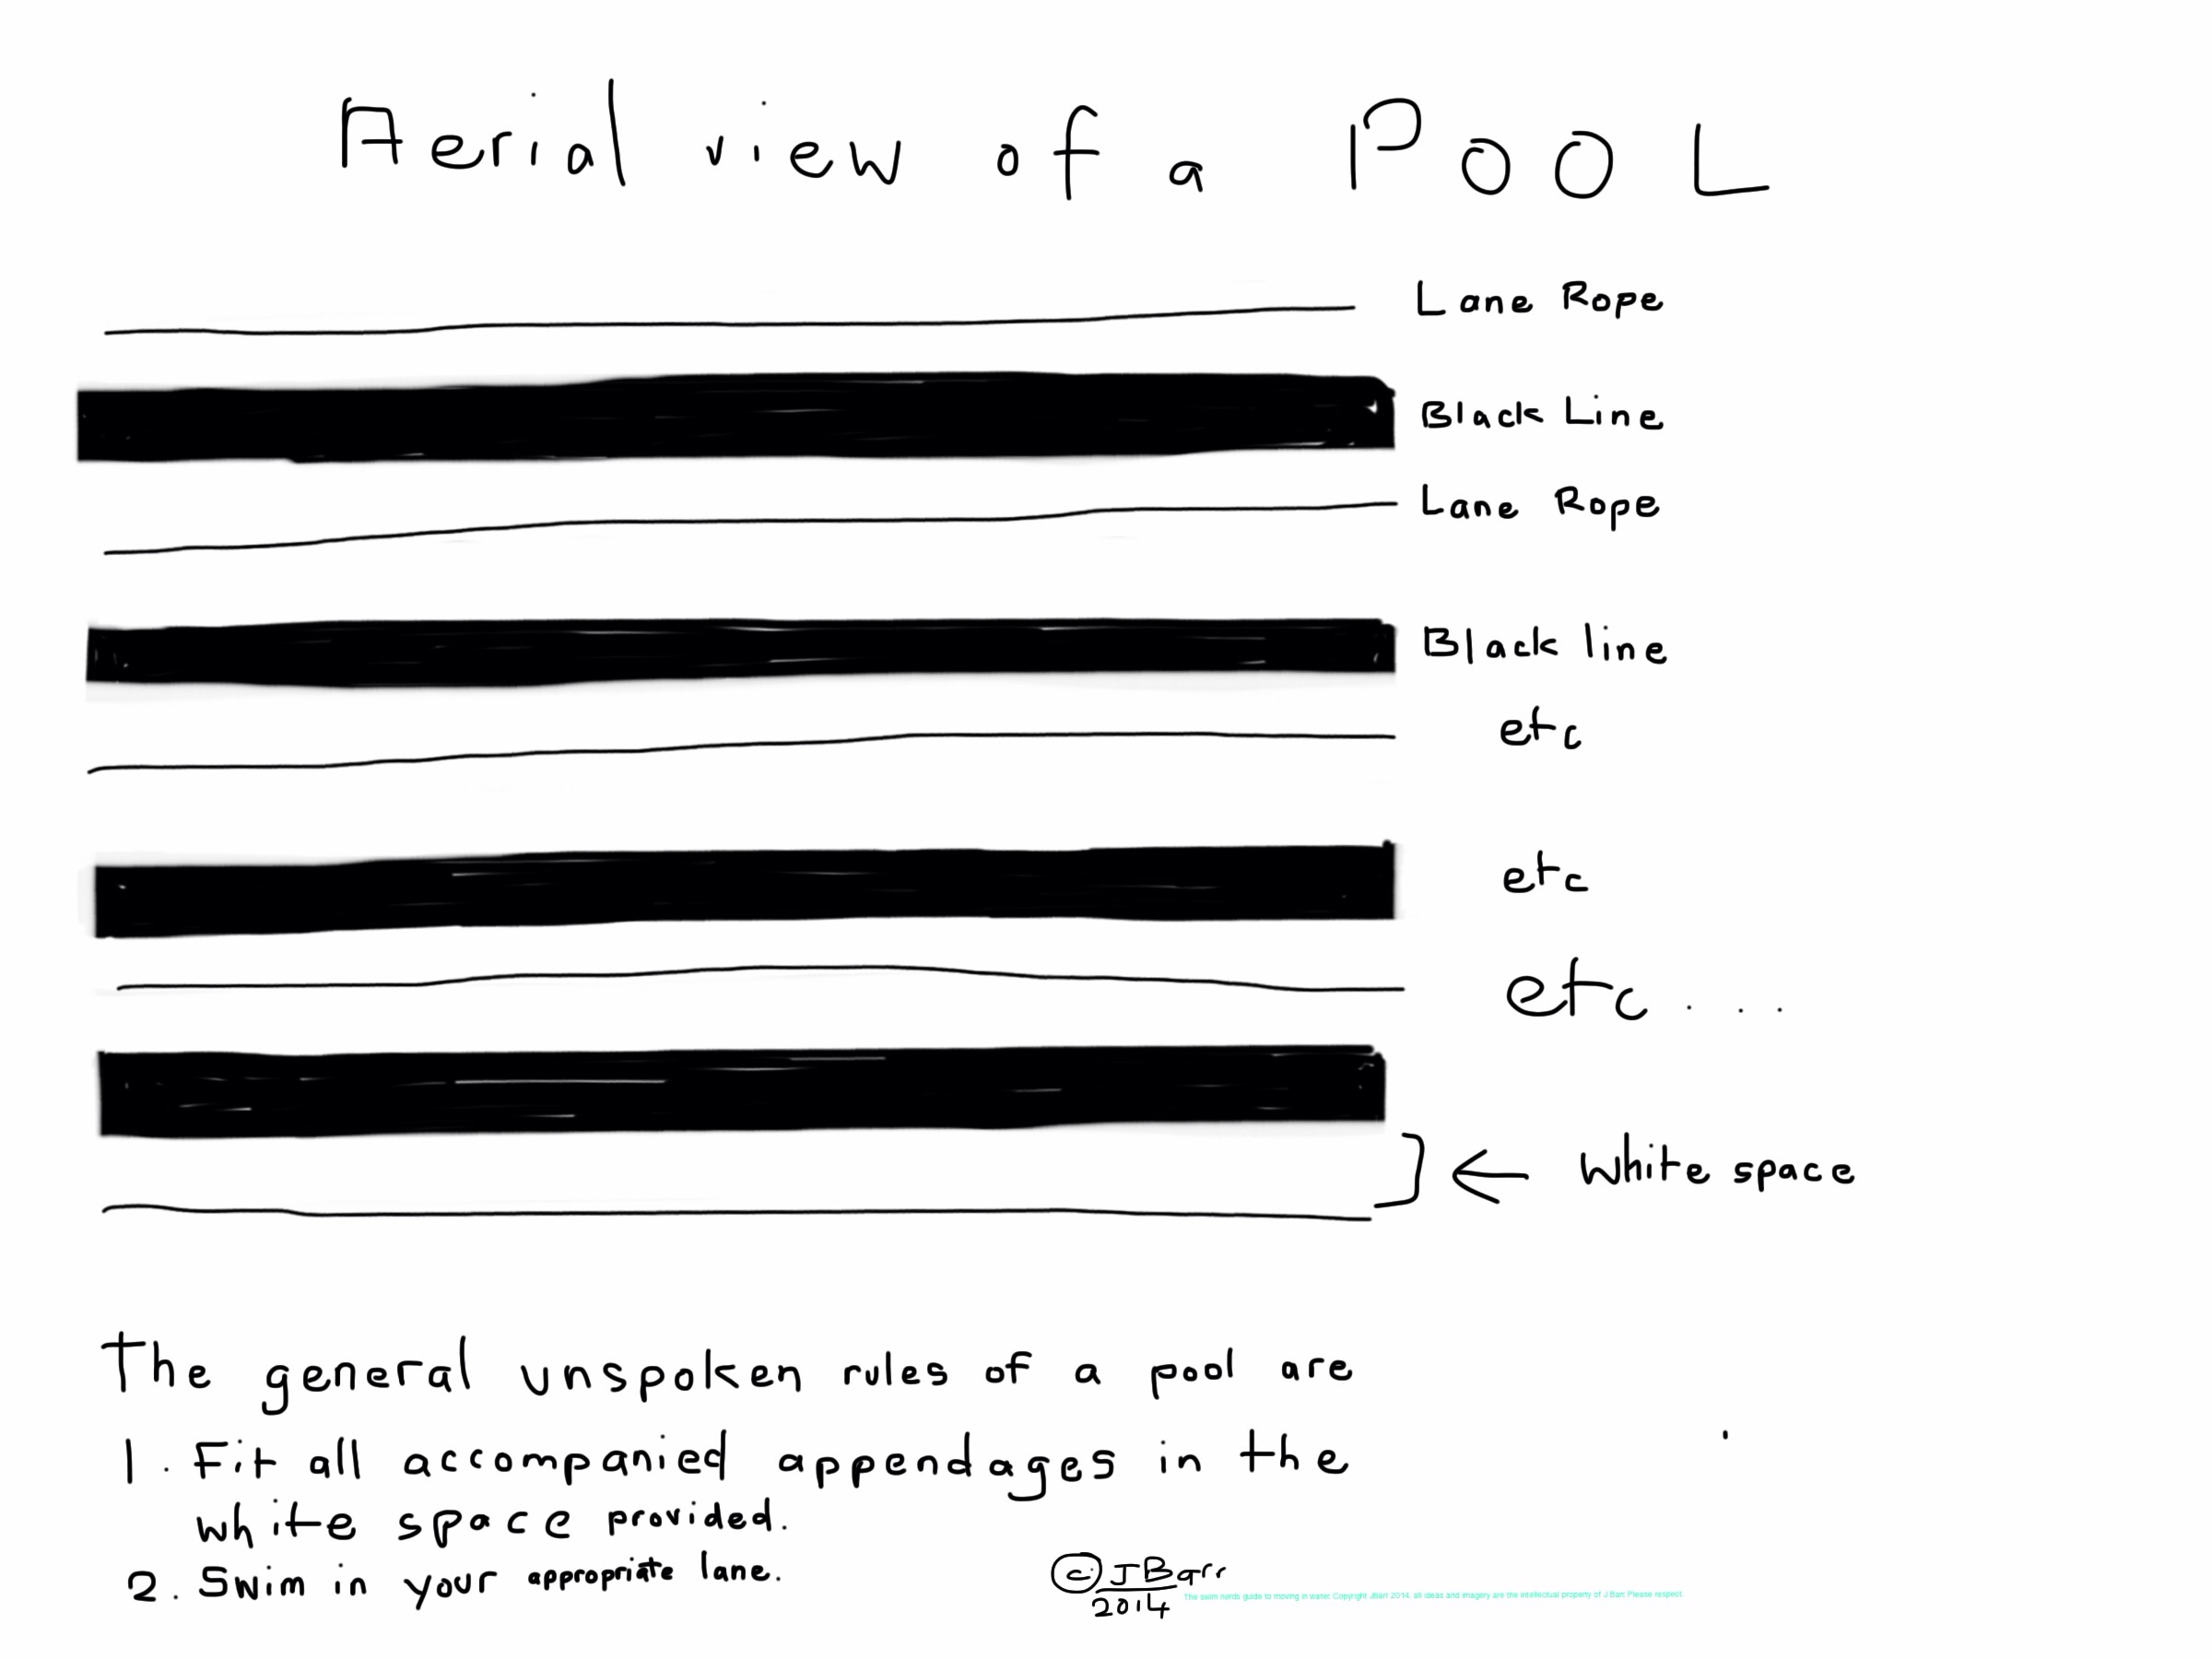 Aerial view of a POOL
Lane Rope
Black Line
Lane Rope
Black line
etc
etc
etc ...
White space
The general unspoken rules of a pool are
1. Fit all accompanied appendages in the
white space provided.
2. Swim in your appropriate lane.
© JBarr
2014
The swim nerds guide to moving in water. Copyright JBarr 2014. all ideas and imagery are the intellectual property of J Barr. Please respect.